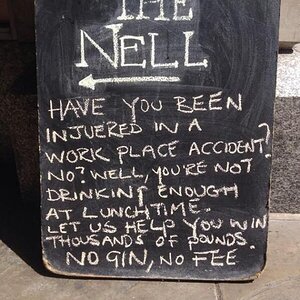 THE
NELL
HAVE YOU BEEN
INJUERED IN A
WORK PLACE ACCIDENT?
NO? WELL, YOU'RE NOT
DRINKING ENOUGH
AT LUNCHTIME.
LET US HELP YOU WIN
THOUSANDS OF POUNDS.
NO GIN, NO FEE